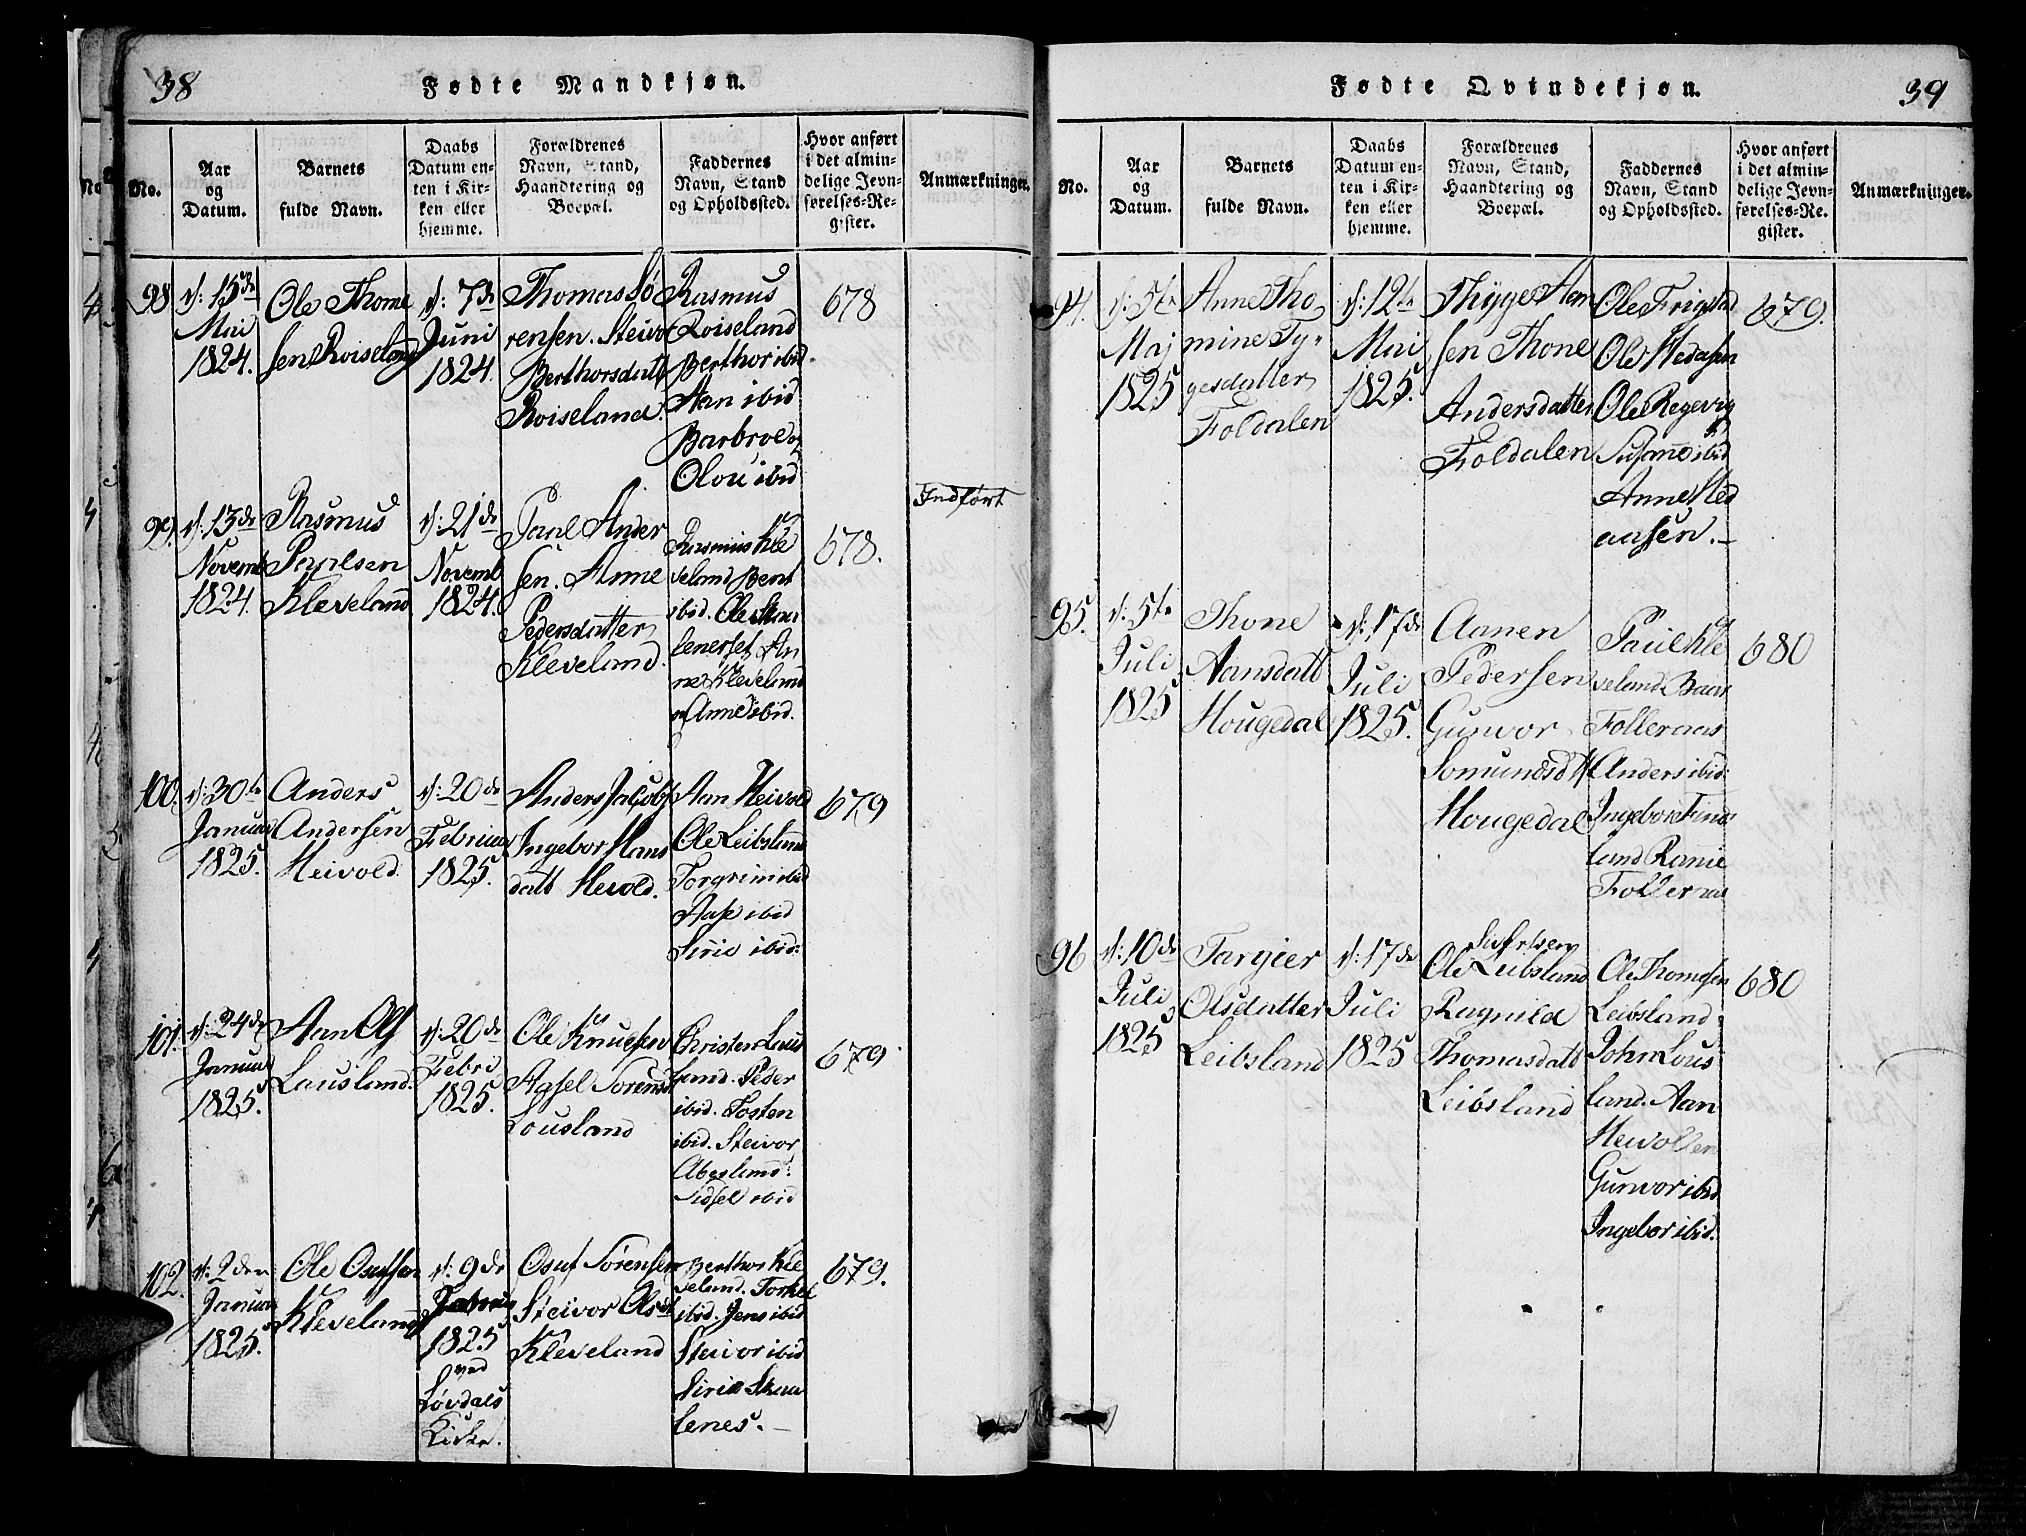 38
Fødte Mandkjøn.
No.
Aar
og
Datum.
Barnets
fulde Navn.
Daabs
Datum en-
ten i Kir-
ken eller
hjemme.
Forældrenes
Navn, Stand,
Haandtering og
Boepæl.
Faddernes
Navn, Stand
og Opholdssted.
Hvor anført
i det almin-
delige Jevn-
førelses-Re-
gister.
Anmærkninger.
98
d: 15de
Mai
1824.
Ole Thome
sen Roiseland
d: 7de
Juni
1824.
Thomas Sø
rensen. Steivor
Berthorsdatt
Roiseland.
Rasmus
Roiseland
Berthor ibid.
Aan ibid
Barbroe og
Olou ibid
678
99.
d: 13de
Novemb
1824.
Rasmus
Paulsen
Kleveland
d: 21de
Novemb
1824.
Paul Ander
sen. Anne
Pedersdatter
Kleveland.
Rasmus Kle
veland Bent
ibid. Ole Skaa
lenes et An
ne Kleveland
og Anne ibid.
678.
Indført
100.
d: 30te
Januar
1825.
Anders
Andersen
Heivold
d: 20de
Februar
1825.
Anders Jacobs
Ingebor Hans
datt Heivold.
Aan Heivold
Ole Leibsland
Torgrim ibid
Aase ibid
Sirie ibid:
679
101.
d: 24de
Januar
1825.
Aan Ols
Lausland.
d: 20de
Febru
1825.
Ole Knudsen
Axsel Sorensd
Lousland
Christen Laus
land. Peder
ibid. Tosten
ibid. Steivor
Abesland:
Sidsel ibid
679
102.
d: 2den
Januar
1825.
Ole Osufsen
Kleveland
d: 9de
1825
ved
Løvdals
Kirke.
Osuf Sørensen
Steivor Olsd
Kleveland
Berthor Kle
veland. Torkel
ibid. Jens ibid
Steivor ibid
Sirie Skaa
lenes.—
679.
39
Fødte Qvindekjøn.
No.
Aar
og
Datum.
Barnets
fulde Navn.
Daabs
Datum en-
ten i Kir-
ken eller
hjemme.
Forældrenes
Navn, Stand,
Haandtering og
Boepæl.
Faddernes
Navn, Stand
og Opholdssted.
Hvor anført
i det almin-
delige Jevn-
førelses-Re-
gister.
Anmærkninger.
94.
d: 5te
Maj
1825
Anne Tho
mine Ty-
gesdatter
Foldalen
d: 12te
Mai
1825.
Thyge Aan
sen Thone
Andersdatter
Foldalen
Ole Frigstad
Ole Stedasen
Ole Regevig
Susanne ibid
Anne Sted
aasen.—
679.
95.
d: 5te
Juli
1825
Thone
Aansdatt
Hougedal
d: 17de
Juli
1825.
Aanen
Pedersen
Gunvor
Somundsdt
Hougedal
Paul Kle
veland. Baar
Folleraas
Anders ibid:
Ingebor Finds
land Ranie
Folleraas
680
96
d: 10de
Juli
1825
Targier
Olsdatter
Leibsland
d: 17de
Juli
1825
Sivertsen
Ole Leibsland
Ragnild
Thomasdatt
Leibsland
Ole Thomsen
Leibsland.
John Lous
land. Aan
Heivollen
Gunvor ibid
Ingebor ibid.
680